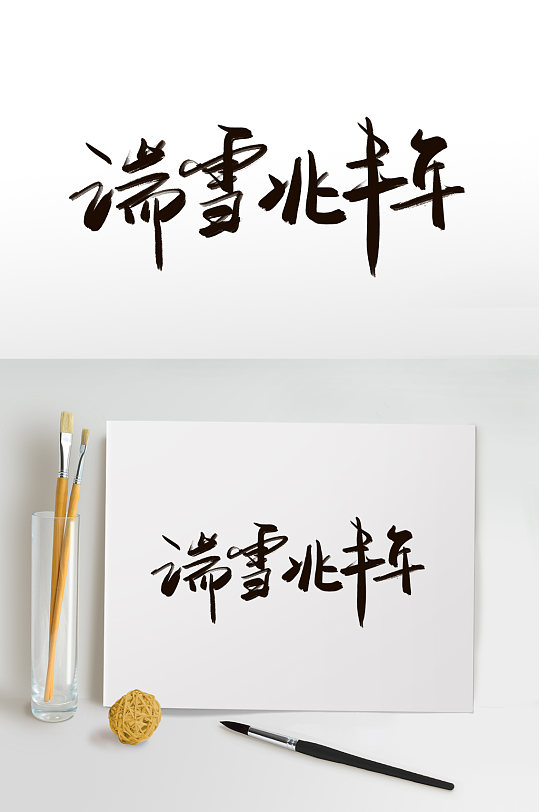 端雪兆丰年
端雪兆丰年